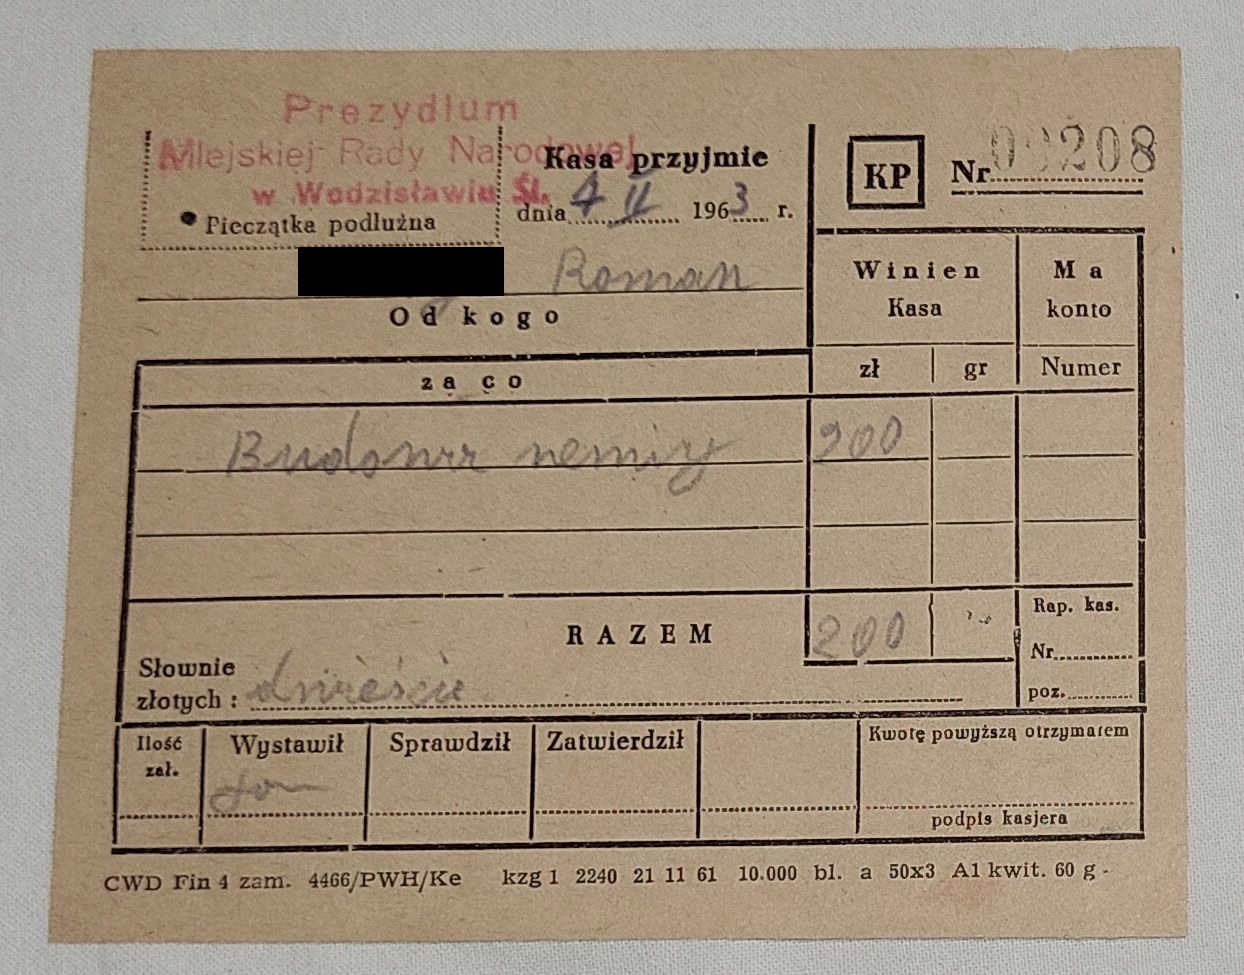 Prezydium
Miejskiej Rady Narodowej
w Wodzisławiu Śl.
Pieczątka podłużna
Kasa przyjmie
dnia 4 II 1963 r.
KP
Nr 00208
Roman
Od kogo
Winien
Kasa
Ma
konto
za co
zł gr Numer
200
RAZEM 200
Rap. kas.
Nr
poz.
Słownie
złotych : dwieście
Ilość
zał.
Wystawił Sprawdził Zatwierdził
Kwotę powyższą otrzymałem
podpis kasjera
CWD Fin 4 zam. 4466/PWH/Ke kzg 1 2240 21 11 61 10.000 bl. a 50x3 A1 kwit. 60 g -